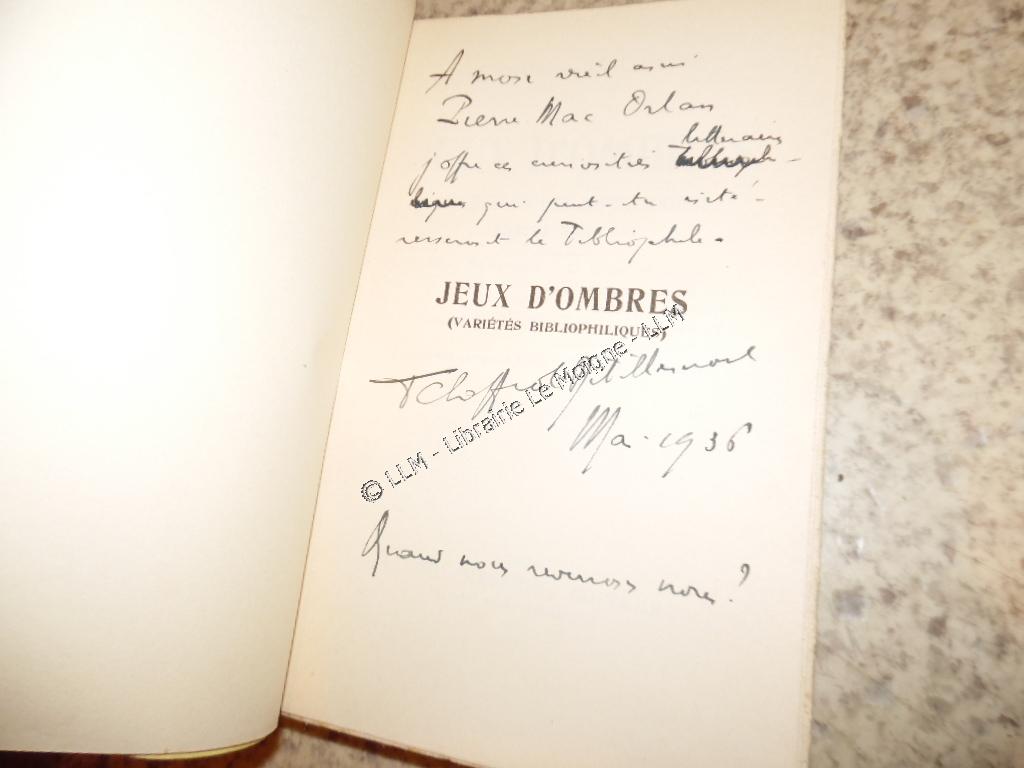 A mon vieil ami
Pierre Mac Orlan
littéraires
j'offre ces curiosités
qui peut-être inté-
resseront le Bibliophile.
JEUX D'OMBRES
(VARIÉTÉS BIBLIOPHILIQUES)
Mai 1936
© LLM - Librairie Le Moigne - LLM
Quand nous reverrons nous ?